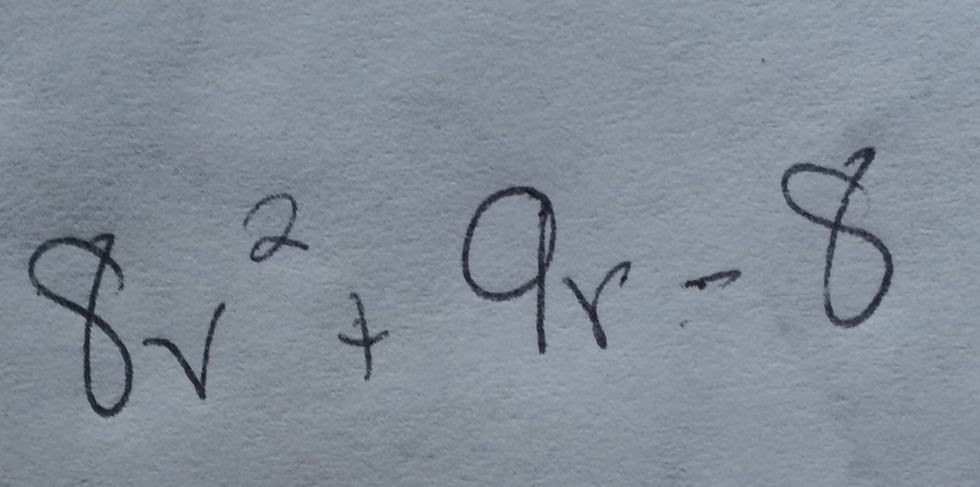 8r² + 9r - 8